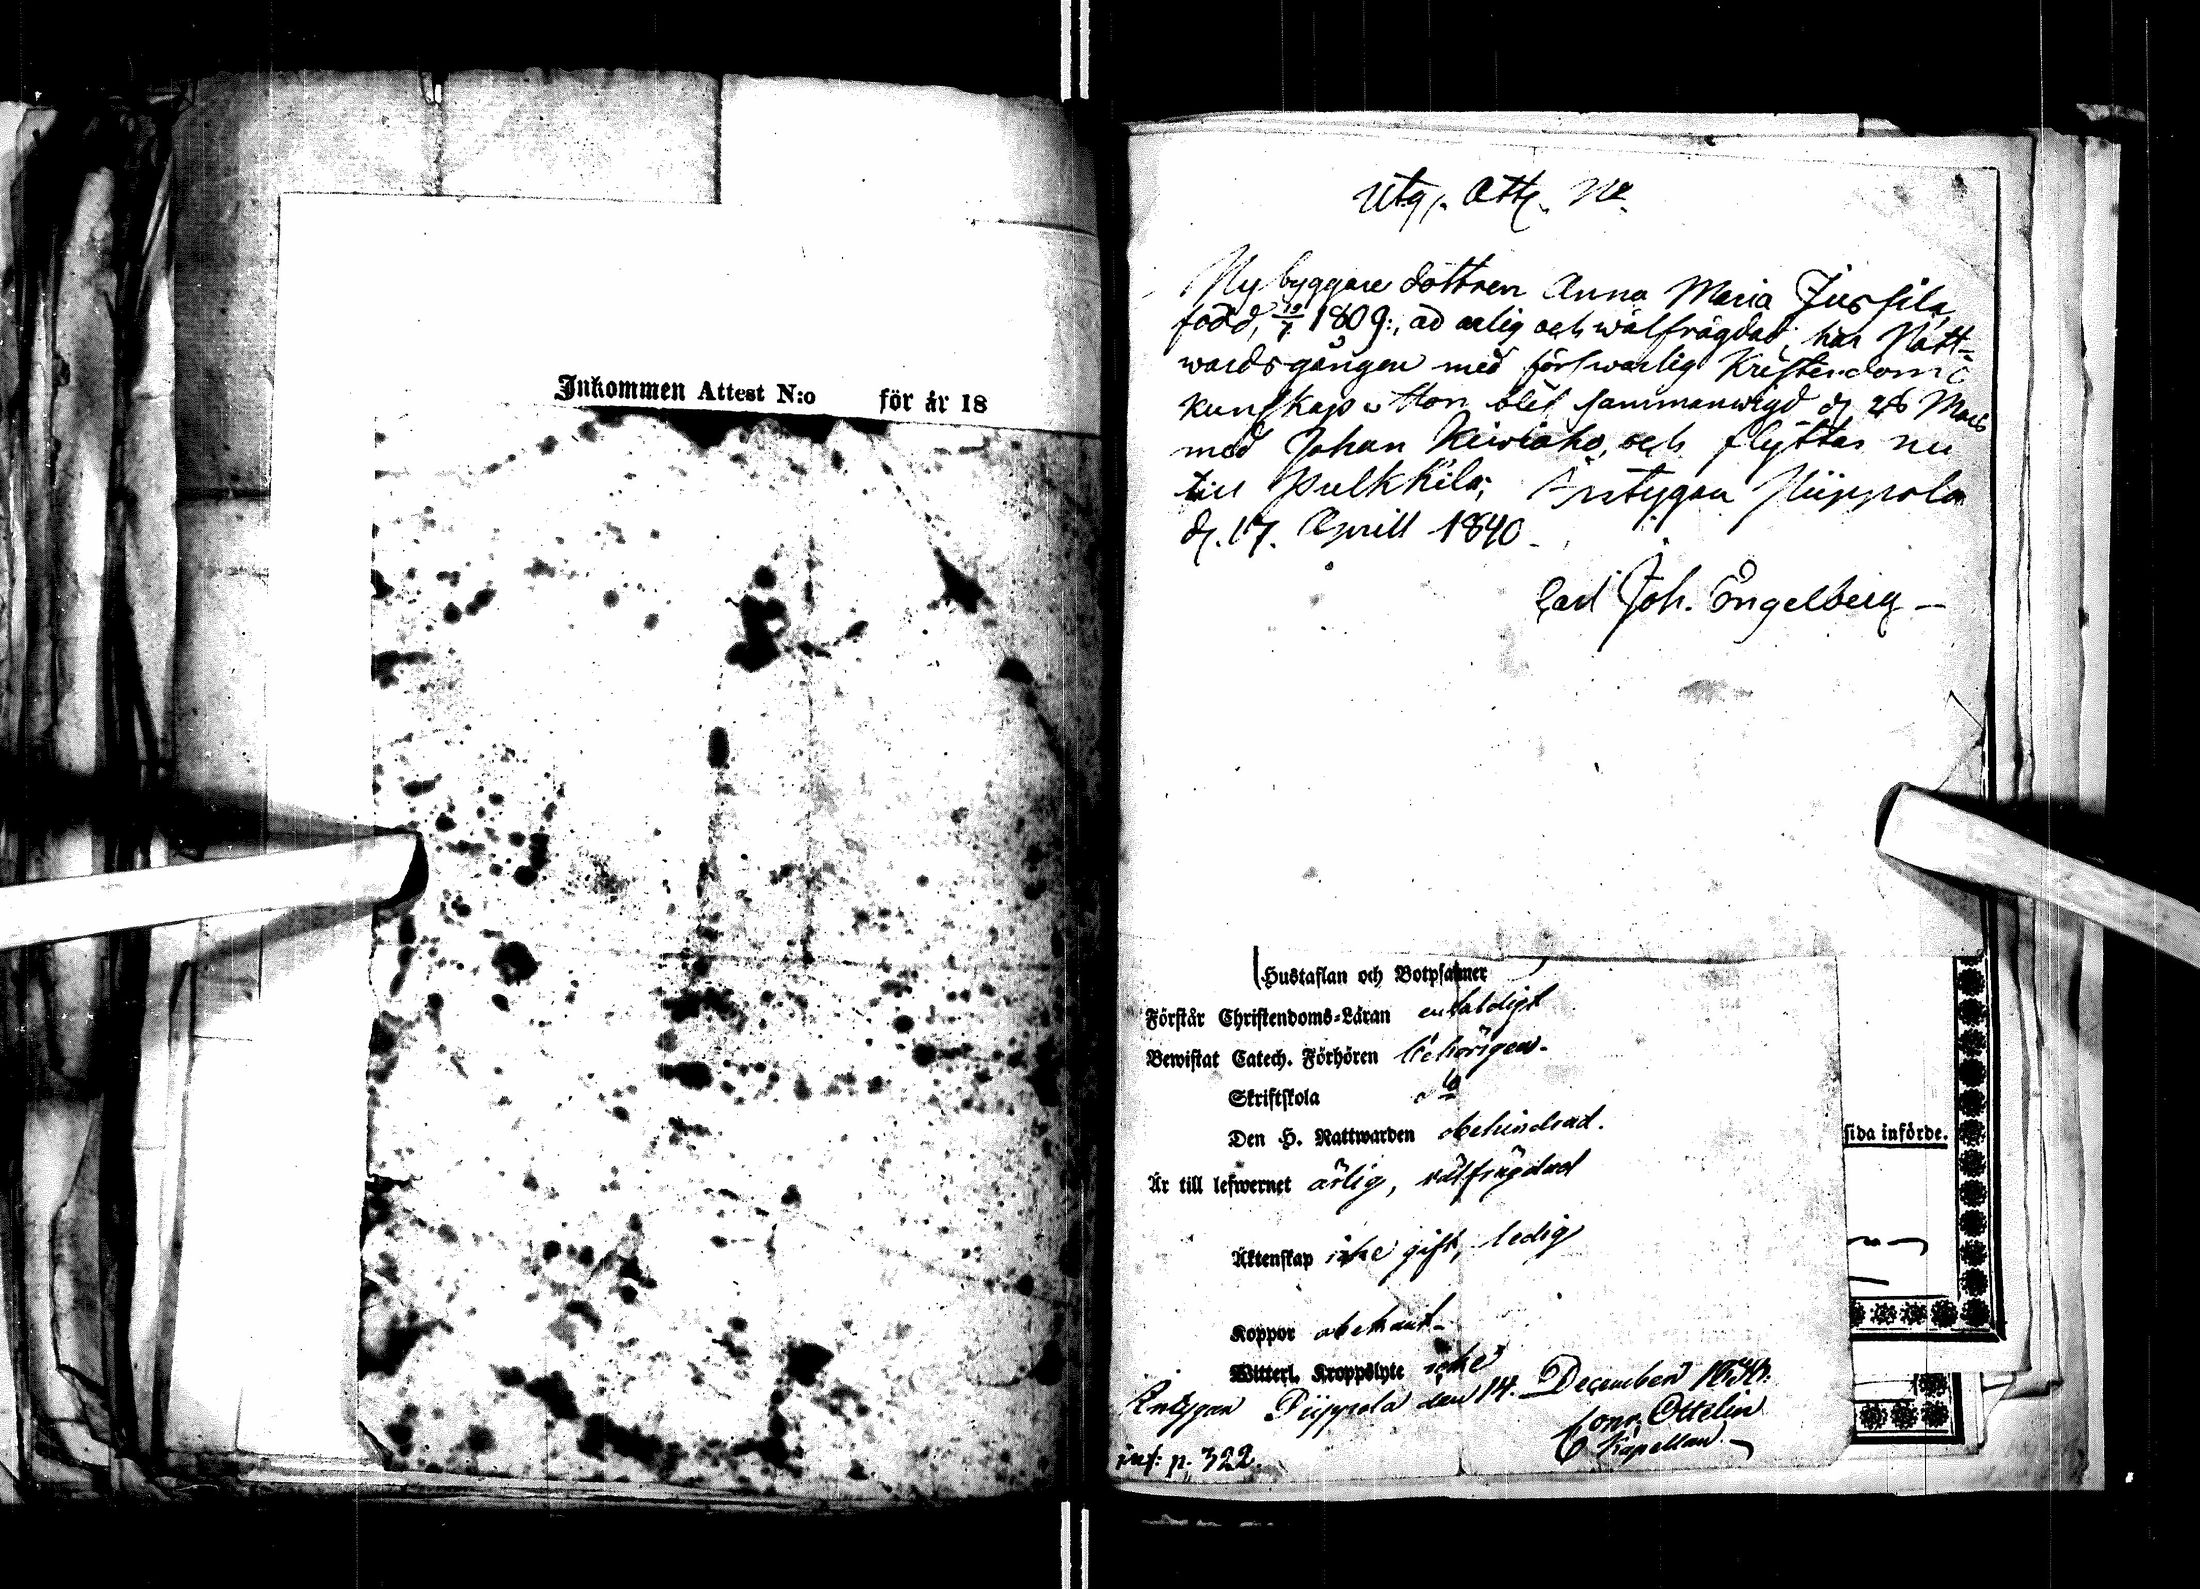 Inkommen Attest N:o för år 18
Utg. Att. No
Nybyggare dottren Anna Maria Jussila,
född, 19/7 1809, är ärlig och wälfrägdad, har Natt-
wardsgången med förswarlig Kristendoms
kunskap. Hon blef sammanwigd d. 26 Mars
med Johan Kiwiaho, och flyttar nu
till Pulkkila; Piippola
d. 17. Aprill 1840
Carl Joh. Engelberg
Hustaflan och Botpsalmer
Förstår Christendoms-Läran enfaldigt
Bewistat Catech. Förhören behörigen.
Skriftskola do
Den H. Nattwarden obehindrad.
Är till lefwernet ärlig, välfrägdad
Äktenskap icke gift, ledig
Koppor
Witterl. Kroppslyte icke
Piippola den 14. December
Ottelin
Kapellan.
inf: p. 322.
sida införde.